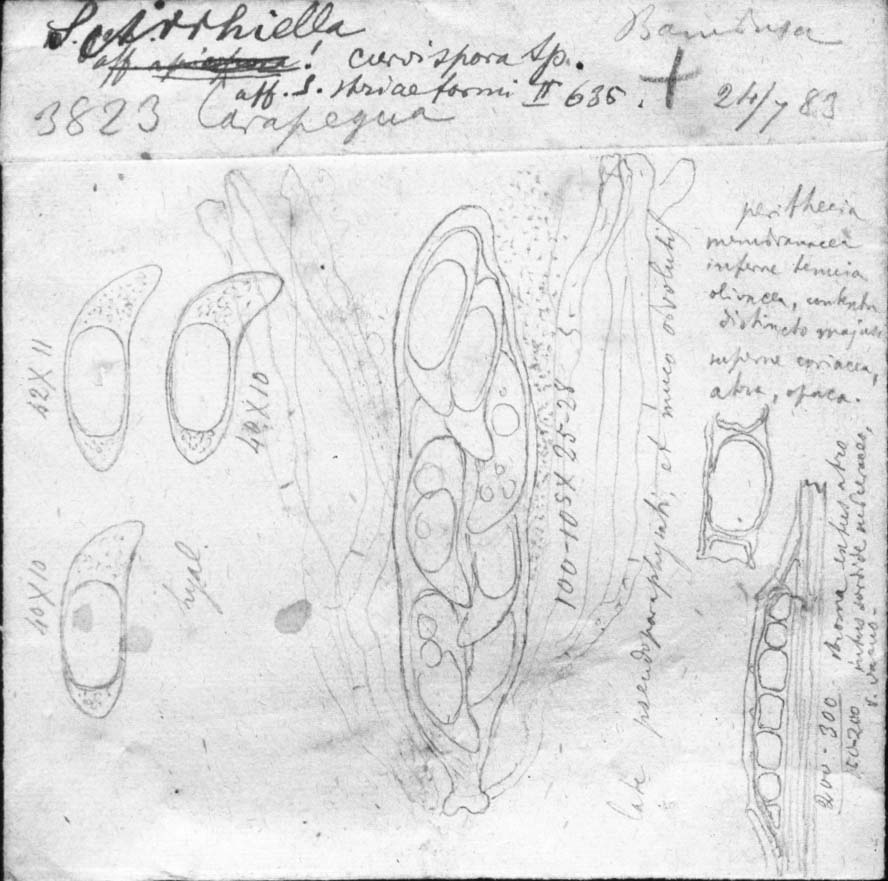 Scirrhiella
aff apiospora! curvispora sp.
aff. S. striaeformi II 635.
Bambusa
3823 Carapegua
24/7 83
perithecia
membranacea
inferne tenuia
olivacea, contextu
distincto majus
superne coriacea,
atra, opaca.
42 X 11
40 X 10
40 X 10
hyal.
100-105 X 25-28
late pseudoparaphysati, et muco obvoluti
200-300
50-200
stroma extus atro
intus sordide